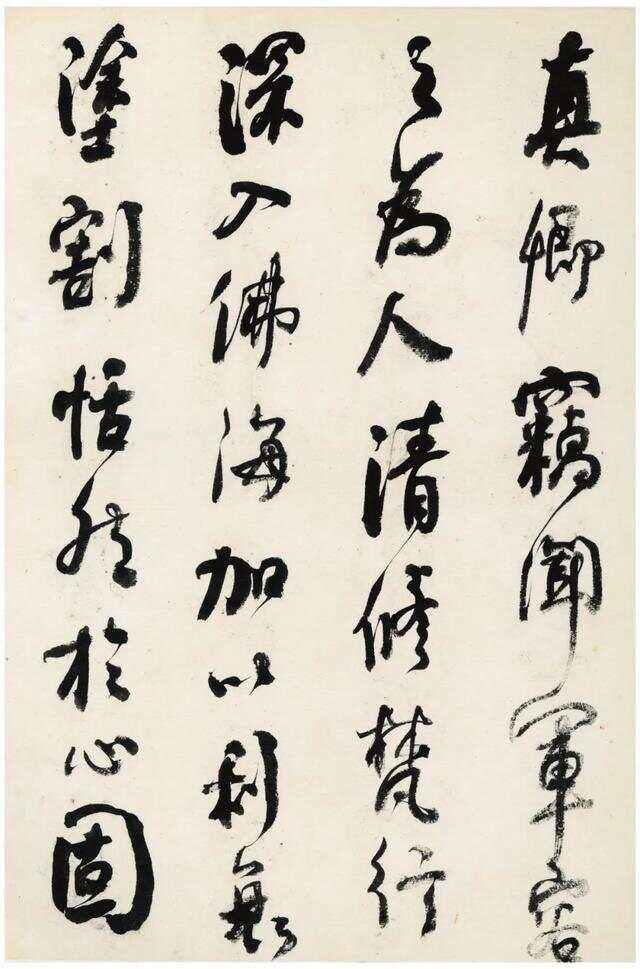 真卿竊聞軍容
之為人清修梵行
深入佛海加以利衰
塗割恬然於心固